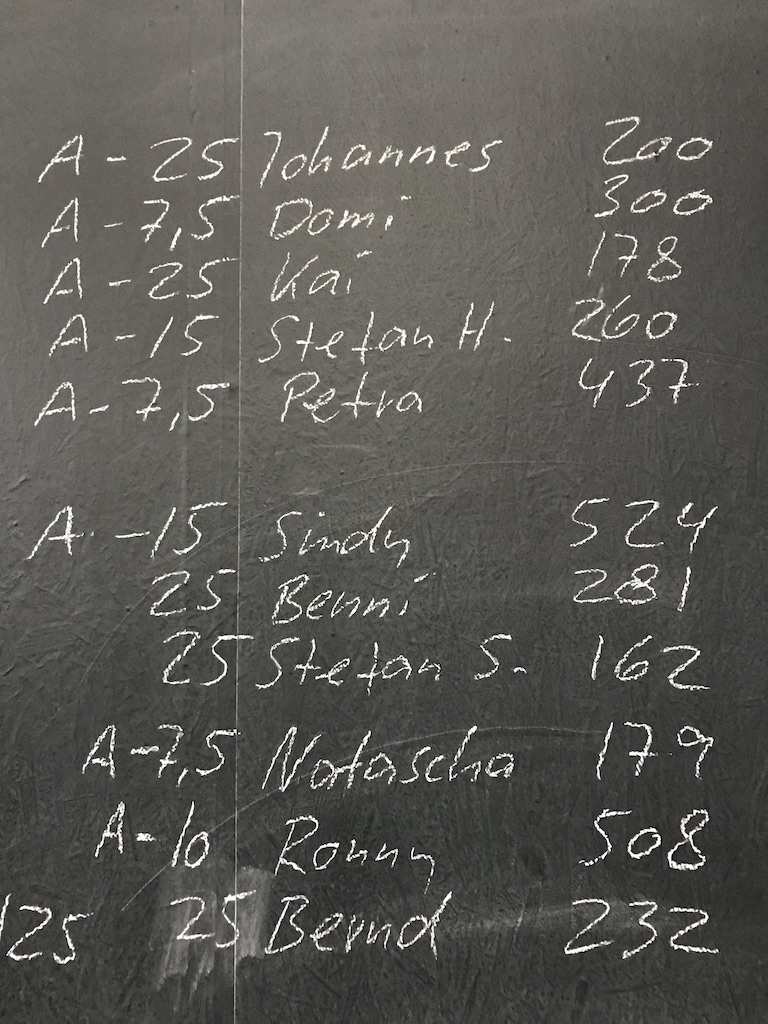 A - 25 Johannes 200
A - 7,5 Domi 300
A - 25 Kai 178
A - 15 Stefan H. 260
A - 7,5 Petra 437
A. - 15 Sindy 524
25 Benni 281
25 Stefan S. 162
A - 7,5 Natascha 179
A - 10 Ronny 508
125 25 Bernd 232